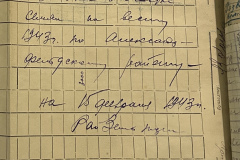 Семян на весну
1943г. по Александро-
фельдскому району
на 15 февраля 1943г.